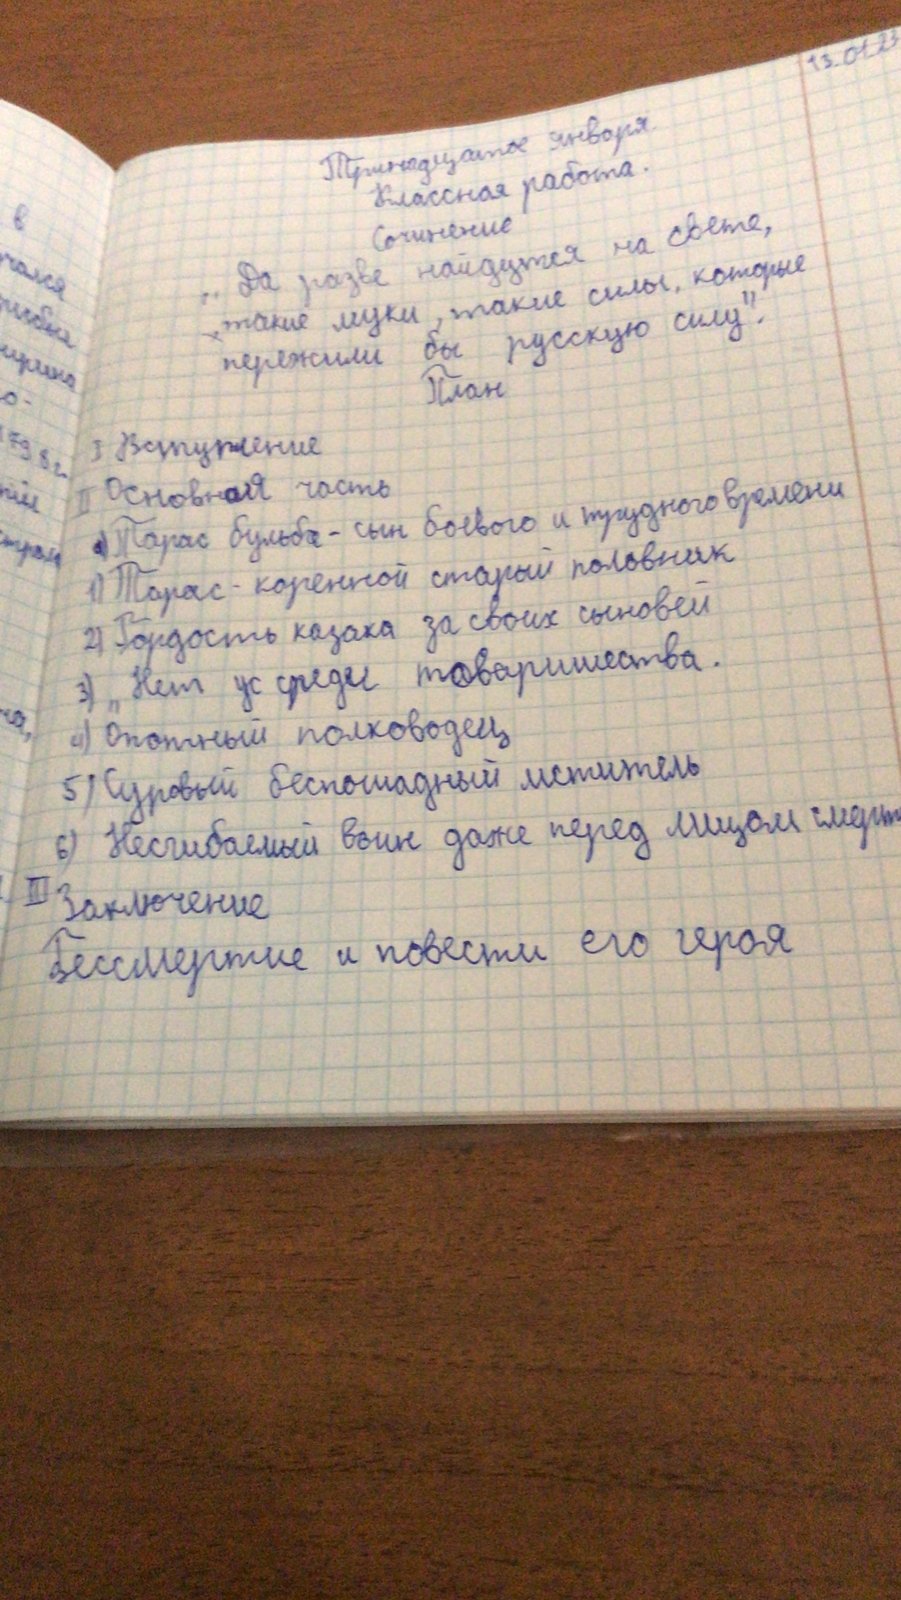 13.01.23
Тринадцатое января.
Классная работа.
Сочинение
„Да разве найдутся на свете,
такие муки, такие силы, которые
пережили бы русскую силу".
План
I Вступление
II Основная часть
Тарас бульба - сын боевого и трудного времени
1) Тарас - коренной старый половник
2) Гордость казака за своих сыновей
3) „Нет ус среды товаришества.
4) Опотный полководец
5) Суровый беспощадный мститель
6) Несгибаемый воин даже перед лицом смерт
III Заключение
Бессмертие и повести его героя